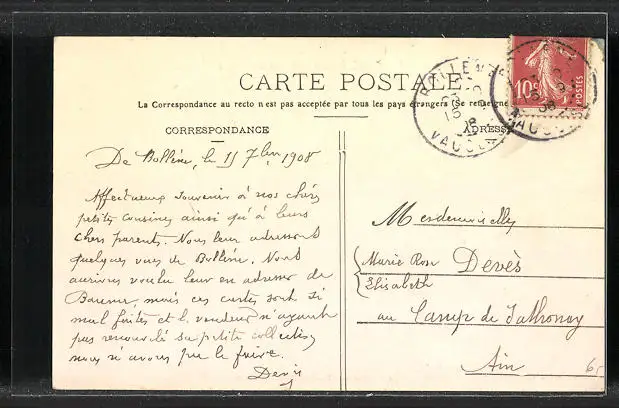 CARTE POSTALE
La Correspondance au recto n'est pas acceptée par tous les pays étrangers (Se renseigne
CORRESPONDANCE
ADRESSE
BOLLENE
VAUCLUSE
10c
POSTES
VAUCLUSE
De Bollène, le 15 7bre 1908
Affectueux souvenir à nos chères
petites cousines ainsi qu'à leurs
chers parents. Nous leur adressons
quelques vues de Bollène. Nous
aurions voulu leur en adresser de
mais ces cartes sont si
mal faites et le vendeur n'ayant
pas renouvelé sa petite collection
nous n'avons pu le faire.
Devès
Mesdemoiselles
Marie Rose Devès
Elisabeth
au Camp de Sathonay
Ain
6,-